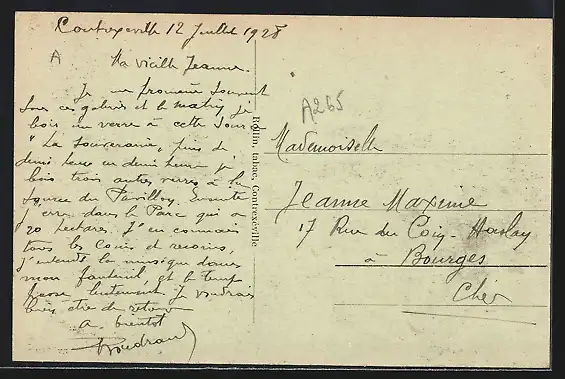 Contrexéville 12 Juillet 1928
A Ma vieille Jeanne.
Je me promène souvent
sous ces galeries et le matin je
bois un verre à cette source
"La souveraine, puis de
demi heure en demi heure je
bois trois autres verres à la
source du Pavillon. Ensuite
j'erre dans le Parc qui a
20 hectares. J'en connais
tous les coins et recoins,
j'entends la musique dans
mon fauteuil, et le temps
passe lentement je voudrais
bien être de retour
a bientôt
A265
Rollin, tabac, Contrexéville
Mademoiselle
Jeanne Maxime
17 Rue du Coin-Haslay
à Bourges
Cher